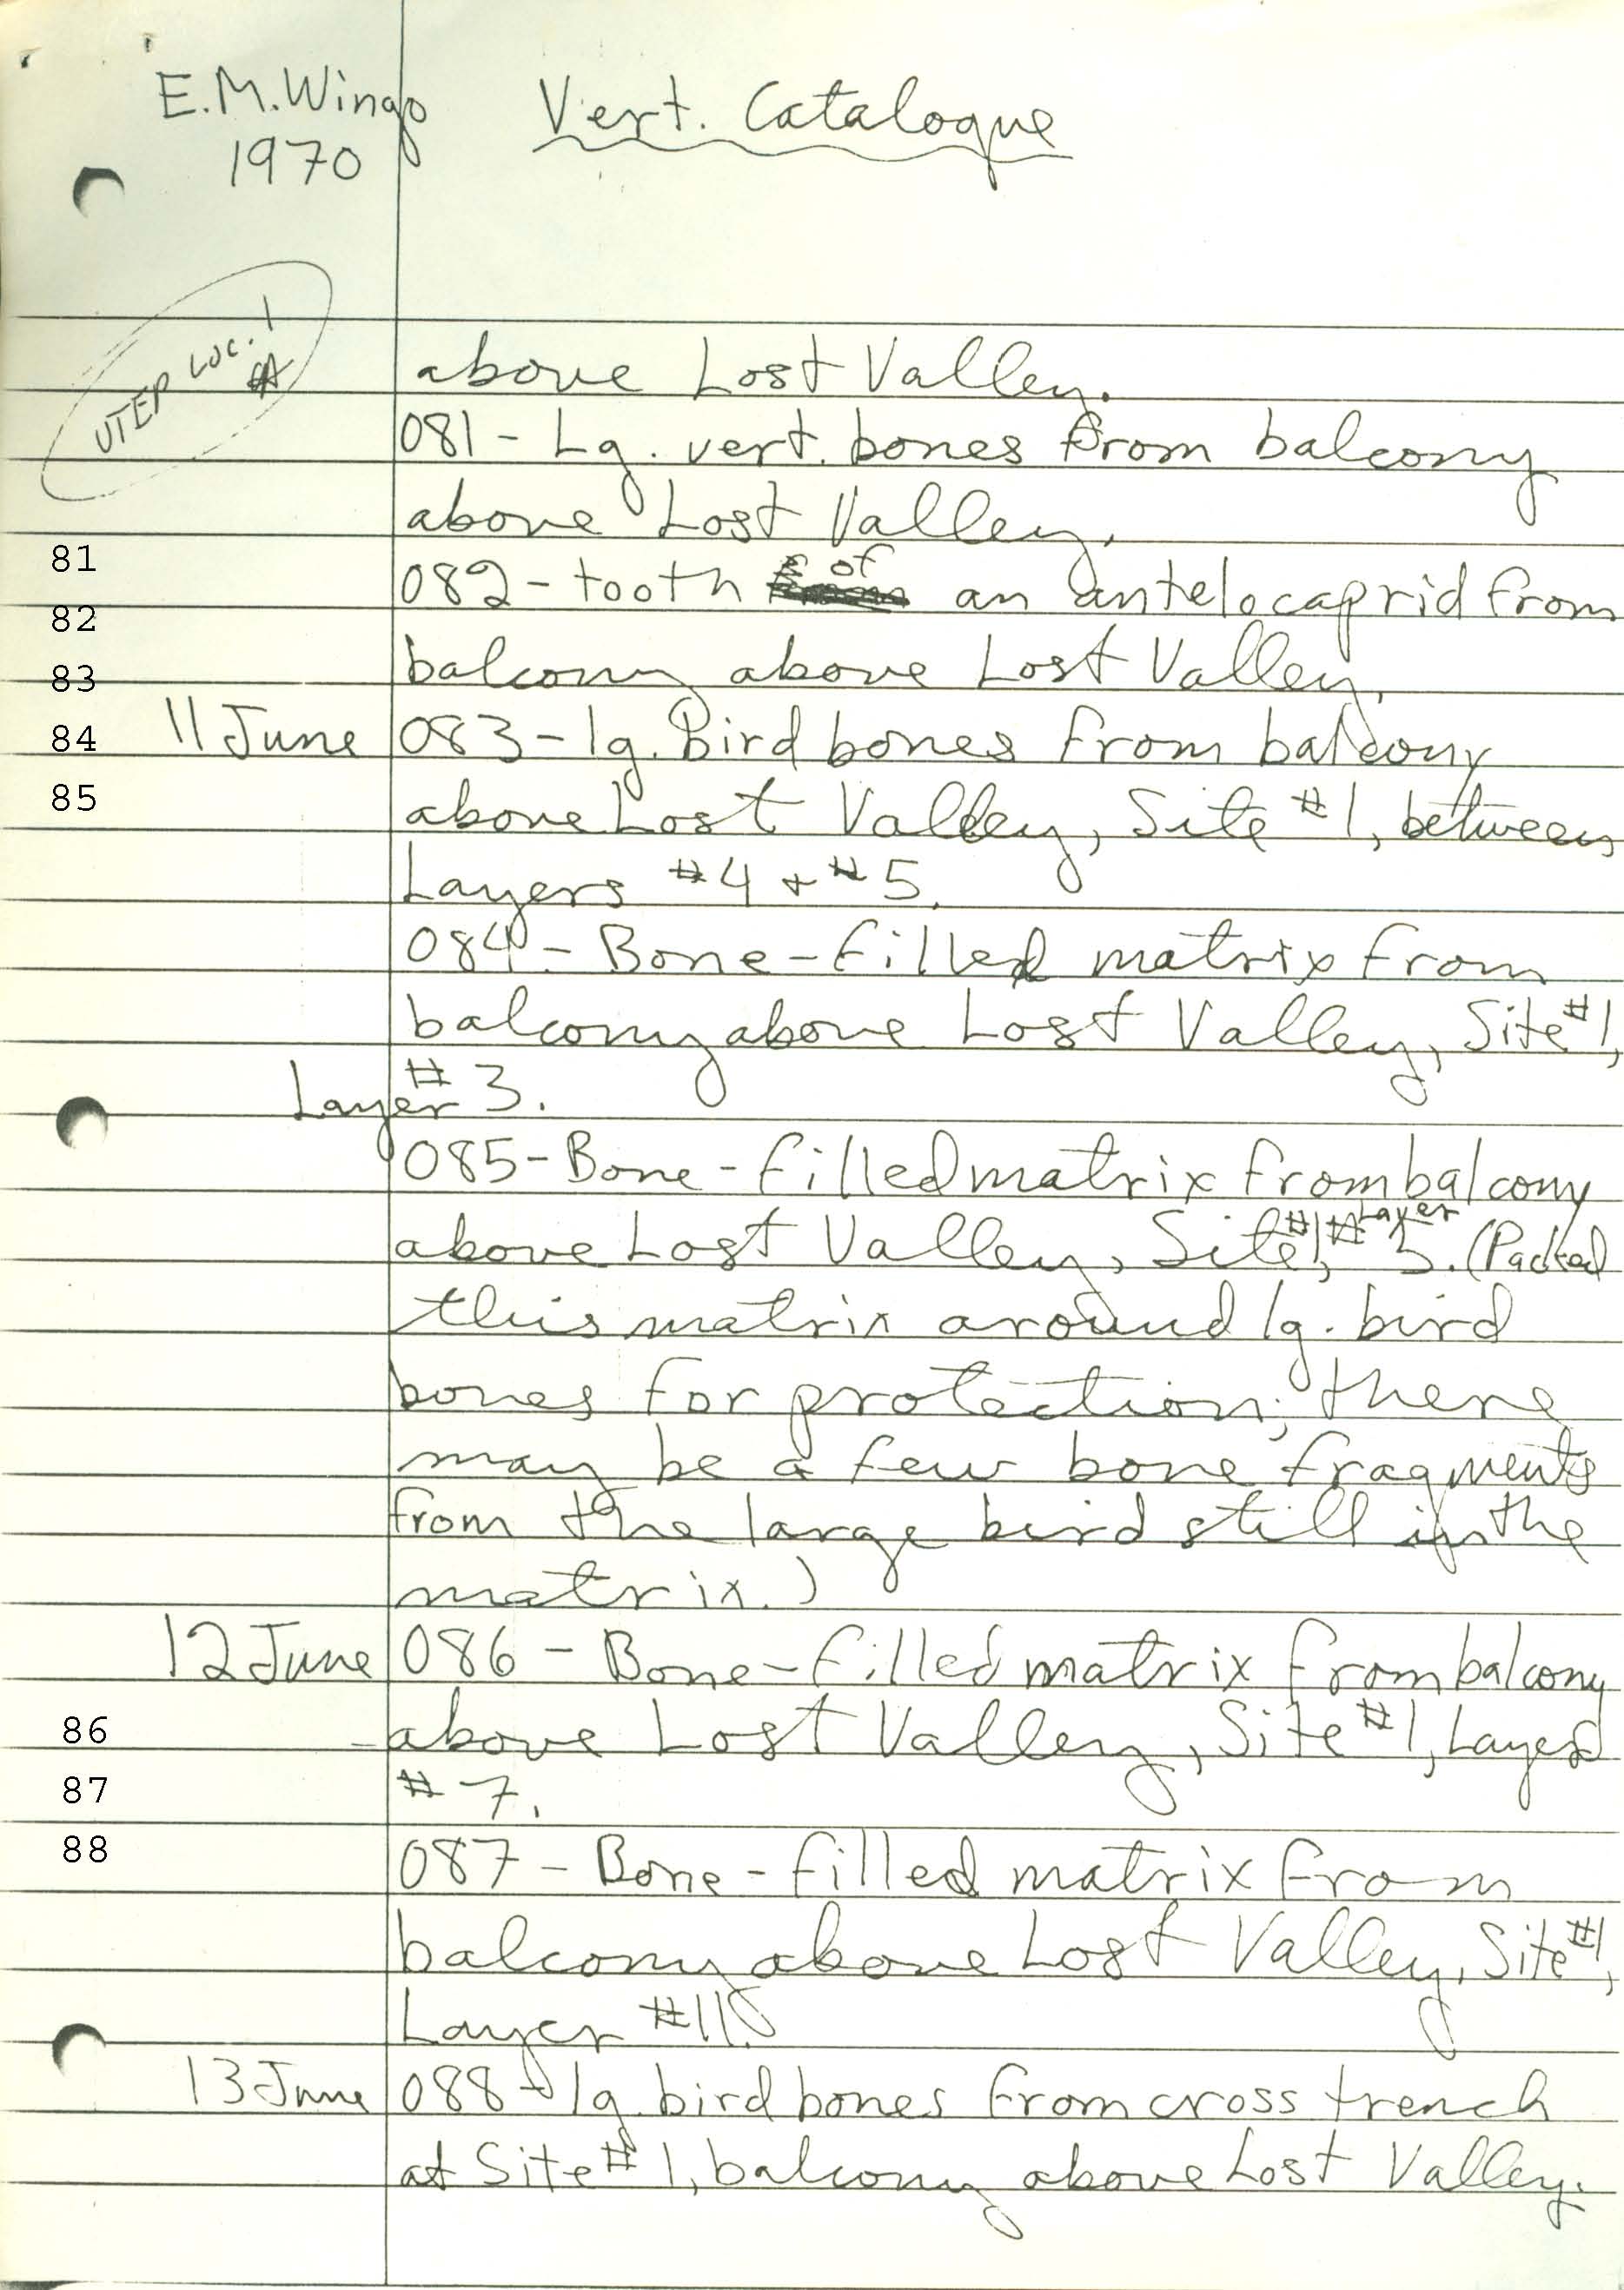 E.M.Wingo
1970
Vert. Catalogue
UTEP LOC. 1
above Lost Valley.
081 - Lg. vert. bones from balcony
above Lost Valley.
81
082 - tooth of an antelocaprid from
82
balcony above Lost Valley.
83
11 June 083 - lg. Bird bones from balcony
84
above Lost Valley, Site #1, between
85
Layers #4 + #5.
084 - Bone-filled matrix from
balcony above Lost Valley, Site #1,
Layer #3.
085 - Bone-filled matrix from balcony
above Lost Valley, Site #1, Layer # 3. (Packed
this matrix around lg. bird
bones for protection; there
may be a few bone fragments
from the large bird still in the
matrix.)
12 June 086 - Bone-filled matrix from balcony
86
above Lost Valley, Site #1, Layer
87
#7.
88
087 - Bone-filled matrix from
balcony above Lost Valley, Site #1,
Layer #11.
13 June 088 - lg. bird bones from cross trench
at Site #1, balcony above Lost Valley.